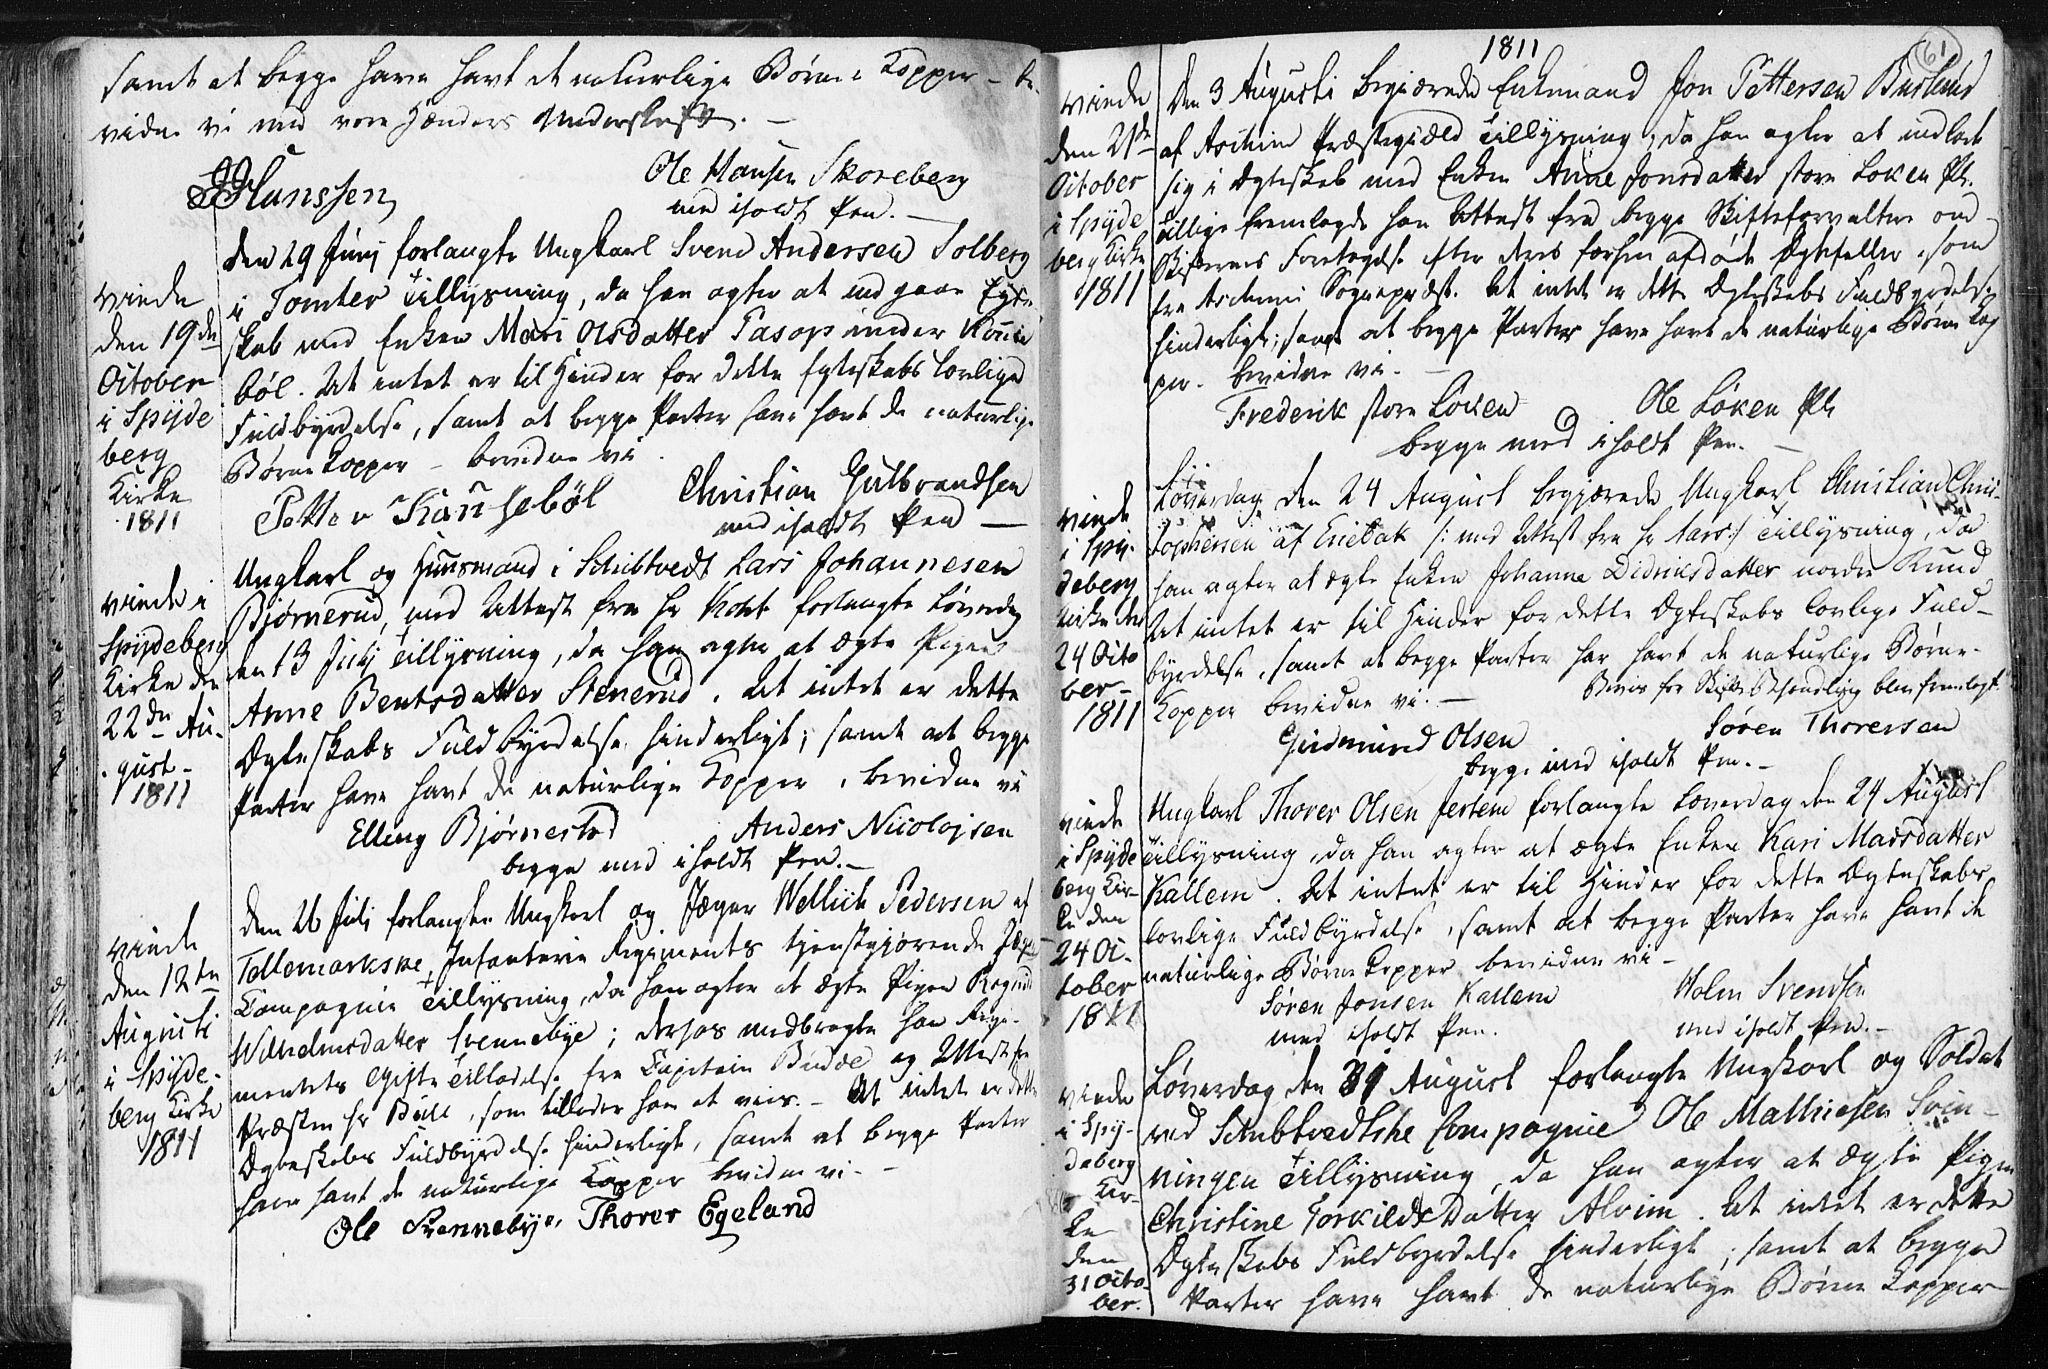 samt at begge have havt de naturlige Børne Kopper – be-
vidne vi med vore Hænders Underskrift. –
Hanssen
Ole Hansen Skoreberg
med iholdt Pen. –
vinde
den 19de
October
i Spyde
berg
Kirke
1811
den 29 Junj forlangte Ungkarl Svend Andersen Solberg
i Tomter Tillysning, da han agter at indgaae Egte-
skab med Enken Mari Olsdatter Tasop under
böl. At intet er til Hinder for dette Egteskabs lovlige
Fuldbyrdelse, samt at begge Parter have havt de naturlige
Børne Kopper – bevidne vi
Petter
Christian Gulbrandsen
med iholdt Pen –
vinde i
Spydeberg
Kirke den
22de Au-
gust –
1811
Ungkarl og Huusmand i Schibtvedt Lars Johannesen
Bjørnerud, med Attest fra Hr forlangte Løverdag
den 13 Julj Tillysning, da han agter at ægte Pigen
Anne Bentsdatter Stenerud. At intet er dette
Ægteskabs Fuldbyrdelse hinderligt; samt at begge
Parter have havt de naturlige Kopper, bevidne vi
Elling Bjørnestad
Anders Nicolajsen
begge med iholdt Pen. –
vinde
den 12te
Augusti
i Spyde-
berg Kirke
1811
den 26 Juli forlangte Ungkarl og Jæger Pedersen af
Tellemarkske Infanterie Regiments tjenstgjørende Jæger
Compagnie Tillysning, da han agter at ægte Pigen
Wilhelmsdatter Svennebye; dersos medbragte han Regi-
mentets Gifte Tilladelse fra Capitain Budde og Attest fra
Præsten Hr Bull, som tillader ham at vies. – At intet er dette
Ægteskabs Fuldbyrdelse hinderligt, samt at begge Parter
have havt de naturlige Kopper bevidne vi –
Ole Svennebye, Thorer Egeland
1811
61
vinde
den 21de
October
i Spyde
berg Kirke
1811
Den 3 Augusti begiærede Enkemand Jon Pettersen
af Aschim Præstegiæld Tillysning, da han agter at indlade
sig i Ægteskab med Enken Anne Jonsdatter store Løken
Tillige fremlagde han Attest fra begge Skifteforvaltere om
Skifternes Foretagelse efter deres forhen afdøde Ægtefæller, som
fra Aschims Sognepræst. At intet er dette Ægteskabs Fuldbyrdelse
hinderligt; samt at begge Parter have havt de naturlige Børne Kop
per – bevidne vi. –
Frederik store Løken
Ole Løken
begge med iholdt Pen. –
vinde
i Spy-
deberg
Kirke den
24 Octo
ber –
1811
Løverdag den 24 August begjærede Ungkarl Christian Chri-
stophersen af Eneback /: med Attest fra Hr Aars :/ Tillysning, da
han agter at ægte Enken Johanne Didriksdatter nordre Rund
At intet er til Hinder for dette Ægteskabs lovlige Fuld-
byrdelse, samt at begge Parter har havt de naturlige Børne-
Kopper bevidne vi. –
Beviis for Skifte Behandling blev fremlagt.
Gudmund Olsen
Søren Thorersen
begge med iholdt Pen. –
vinde
i Spyde
berg Kir-
ke den
24 Oc-
tober
1811
Ungkarl Thorer Olsen Jertem forlangte Løverdag den 24 August
Tillysning, da han agter at ægte Enken Kari Madsdatter
Kallem. At intet er til Hinder for dette Ægteskabs
lovlige Fuldbyrdelse, samt at begge Parter have havt de
naturlige Børne Kopper bevidne vi –
Søren Jonsen Kallem
med iholdt Pen.
Holm Svendsen
med iholdt Pen. –
vinde
i Spy-
deberg
Kir-
ke
den
31 Octo-
ber.
Løverdag den 31 August forlangte Ungkarl og Soldat
ved Schibtvedtske Compagnie Ole Mathiesen Svin-
ningen Tillysning, da han agter at ægte Pigen
Christine Torkildsdatter Alvim. At intet er dette
Ægteskabs Fuldbyrdelse hinderligt; samt at begge
Parter have havt de naturlige Børne Kopper